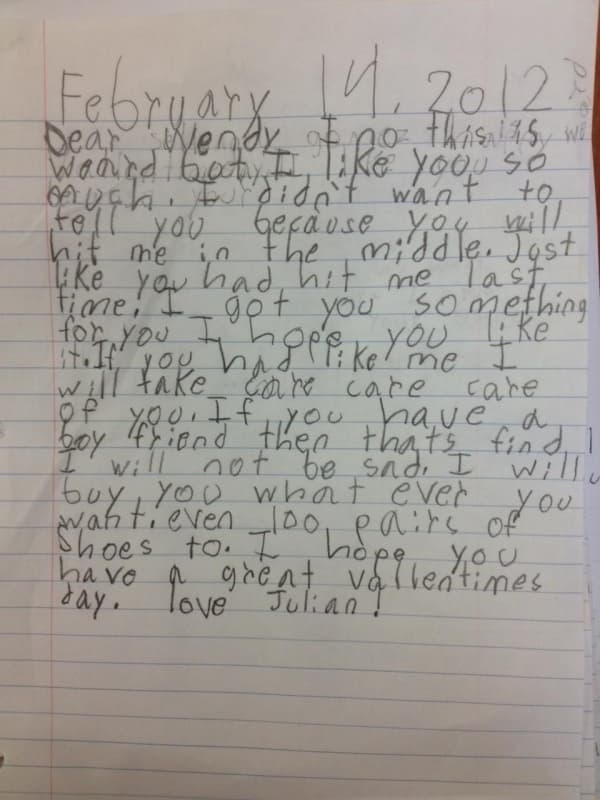 February 14, 2012
Dear Wendy I no this is
weard bot I like yoou so
much. I didn't want to
tell you because you will
hit me in the middle. Just
like you had hit me last
time. I got you something
for you I hope you like
it. If you had like me I
will take care care care
of you. If you have a
boy friend then thats find
I will not be sad. I will
buy you what ever you
want. even 100 pairs of
Shoes to. I hope you
have a great vallentimes
day. love Julian!